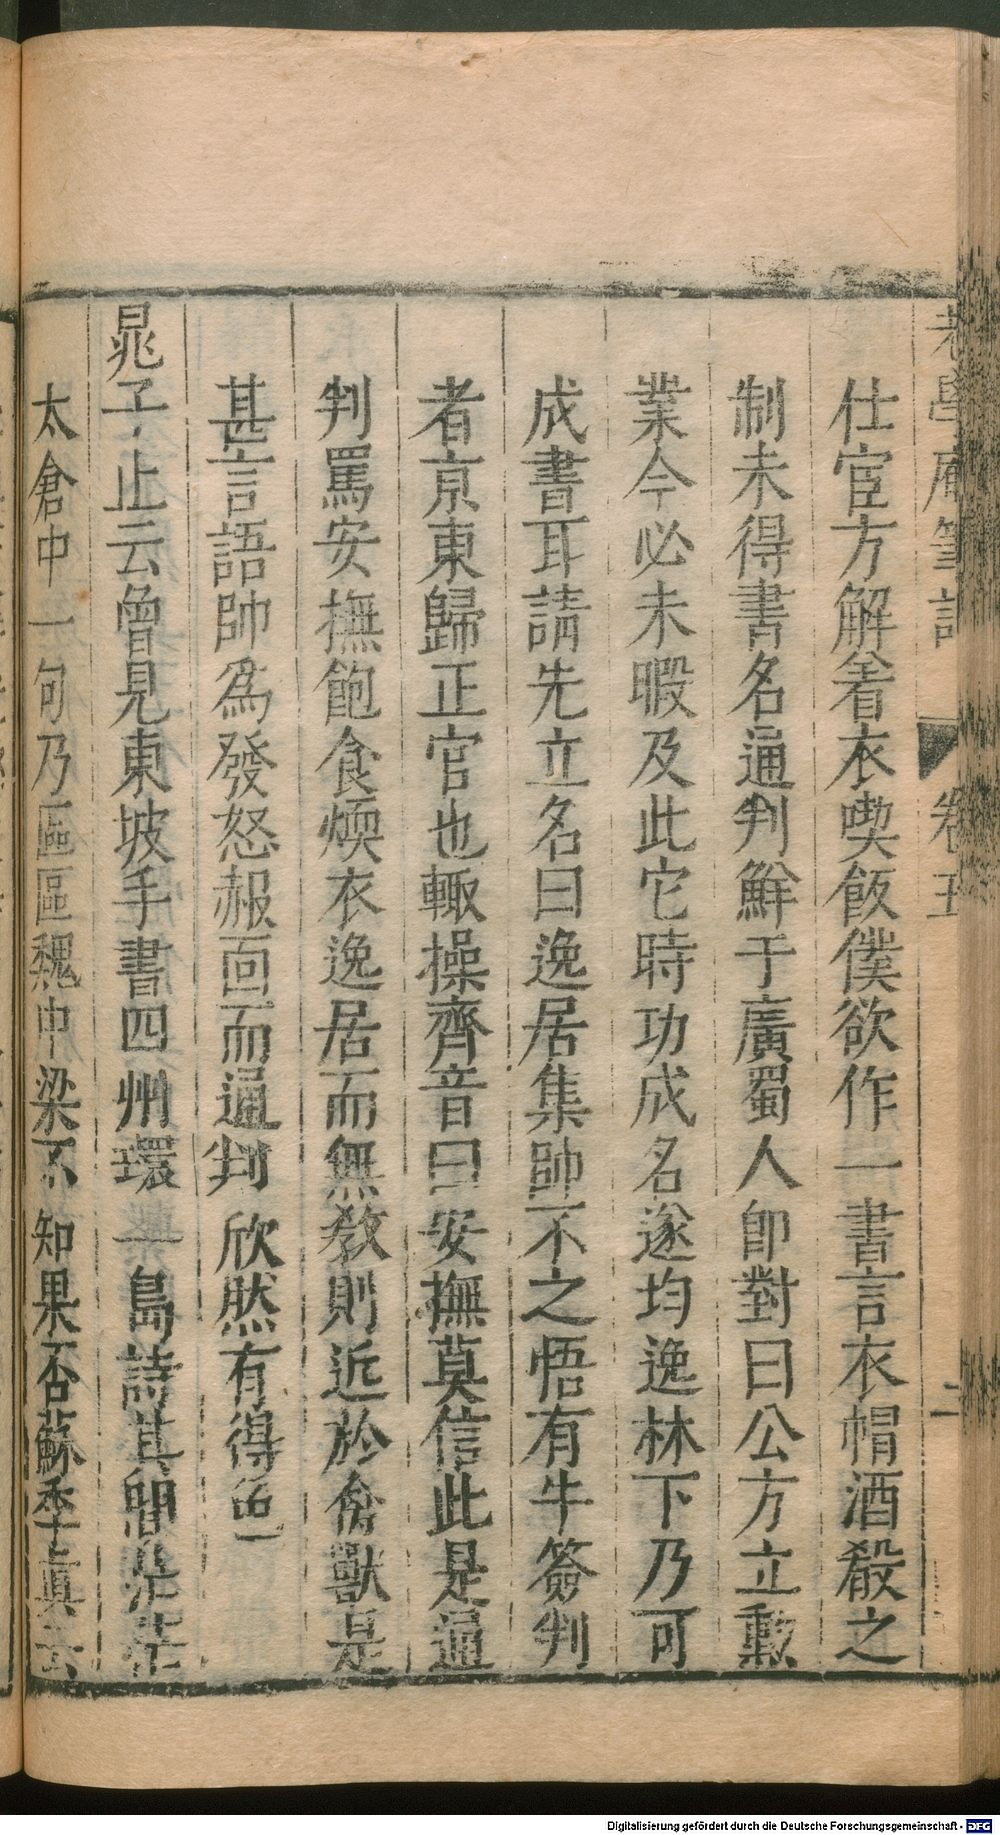 老學庵筆記 卷五 二
仕宦方解着衣喫飯僕欲作一書言衣帽酒殽之
制未得書名通判鮮于廣蜀人卽對曰公方立勳
業今必未暇及此它時功成名遂均逸林下乃可
成書耳請先立名曰逸居集帥不之悟有牛簽判
者京東歸正官也輙操齊音曰安撫莫信此是通
判罵安撫飽食煗衣逸居而無教則近於禽獸是
甚言語帥爲發怒赧面而通判欣然有得色
晁子止云曾見東坡手書四州環一島詩其間茫茫
太倉中一句乃區區魏中梁不知果否蘇季真云
Digitalisierung gefördert durch die Deutsche Forschungsgemeinschaft - DFG